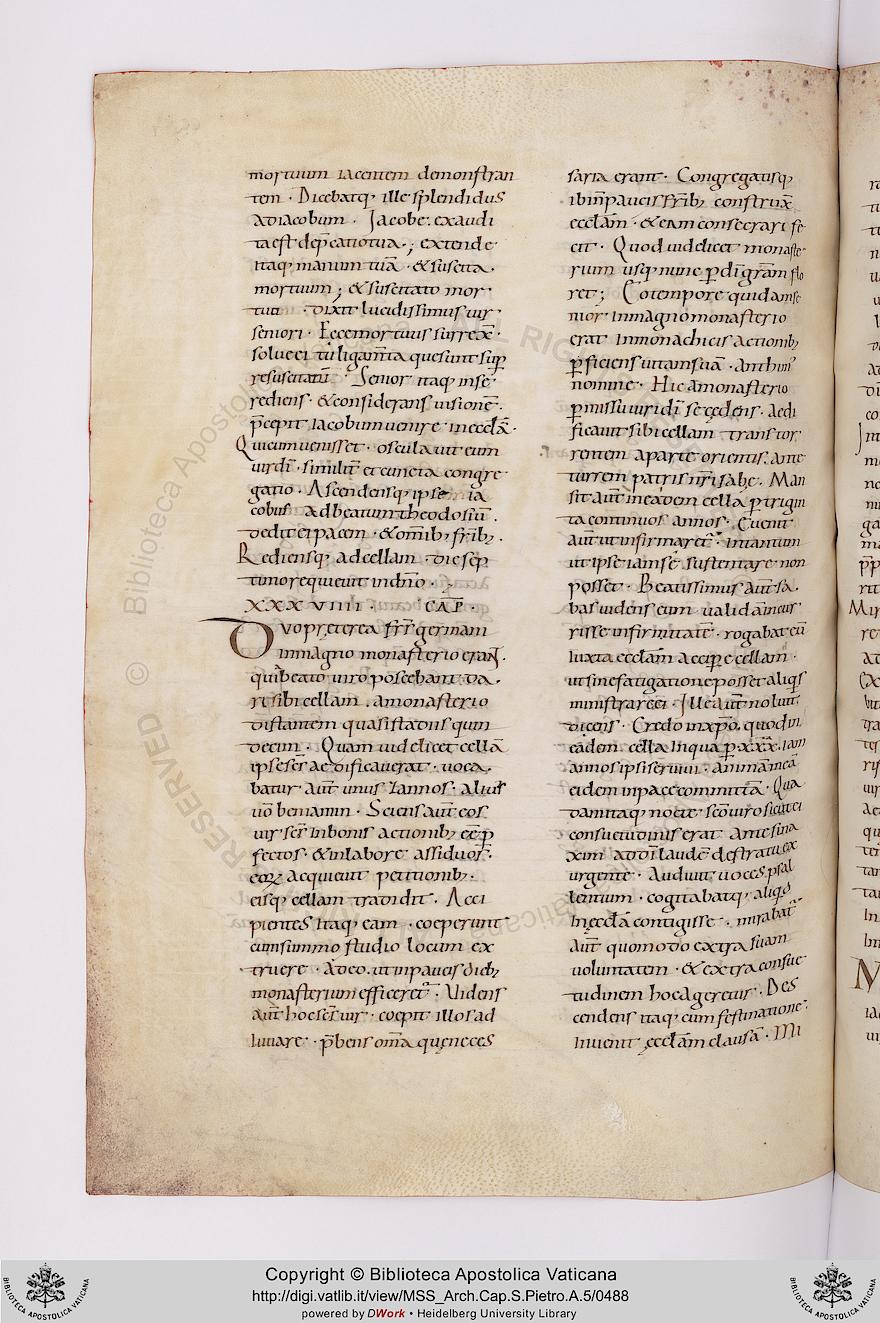 mortuum iacentem demonstran
tem · Dicebatq; ille splendidus
ad iacobum · Jacobe· exaudi
ta est dep̄catio tua ·; extende
itaq; manum tuā · & suscita·
mortuum ; & suscitato mor·
tuo · dixit lucidissimus uir·
seniori · Ecce mortuus surrex̄ ·
solue ei tu ligam̄ta que sunt sup̄
resuscitatū · Senior itaq; inse
rediens · & considerans uisionē·
p̄cepit iacobum uenire in ecclā·
Quicum uenisset · osculauit eum
uir dī · similit̄ et cuncta congre·
gatio · Ascendensq; ipse ia
cobus ad beatum theodosiū ·
dedit ei pacem · & omīb; fr̄ib; ·
Rediensq; ad cellam · die sep
timo requieuit in dn̄o ·
XXXVIIII · CAP̄ ·
Duo pręterea fr̄r germani
in magno monasterio erant ·
qui beato uiro poscebant · da·
ri sibi cellam · a monasterio
distantem quasi stadiis quin
decim · Quam uidelicet cellā
ipse sc̄s aedificauerat · uoca·
batur aut̄ unus Iannos · alius
uō beniamin · Sciens aut̄ eos
uir sc̄s in bonis actionib; ee p̄
fectos · & in labore assiduos ·
eoꝝ acquieuit petitionib; ·
eisq; cellam tradidit · Acci
pientes itaq; eam · coeperunt
cum summo studio locum ex
truere · Adeo · ut in paucis dieb;
monasterium efficeret̄ · Uidens
aut̄ hoc sc̄s uir · coepit illos ad
iuuare · p̄bens om̄a quę neces
saria erant · Congregatisq;
ibi in paucis fr̄ib; construx̄
ecclām · & eam consecrari fe
cit · Quod uidelicet monaste·
rium usq; nunc p̄ dī gr̄am flo
ret ; Eo tempore quidam se
nior in magno monasterio
erat in monachicis actionib;
p̄ficiens uitam suā · anthim'
nomine · Hic a monasterio
p̄missu uiri dī secedens · aedi
ficauit sibi cellam trans tor
rentem a parte orientis · ante
turrem patris nr̄i sabę · Man
sit aut̄ in eadem cella p̄ trigin
ta continuos annos · Euenit
aut̄ ut infirmaret̄ · in tantum
ut ipse iam se sustentare non
posset · Beatissimus aut̄ sa·
bas uidens eum ualida incur
risse infirmitatē · rogabat eū
iuxta ecclām accip̄e cellam ·
ut sine fatigatione posset aliq;s
ministrare ei · Ille aut̄ noluit
dicens · Credo in xp̄o · quod in
eadem cella in qua p̄ xxx · iam
annos ipsi seruiui · animā meā
eidem in pace committā · Qua
dam itaq; nocte · sc̄o uiro sicut ei
consuetudinis erat ante sina
xim ad dī laudē de stratu ex
urgente · Audiuit uoces psal
lentium · cogitabatq; aliq;d
in ecclā contigisse · mirabat̄
aut̄ quomodo extra suam
uoluntatem · & extra consue
tudinem hoc ageretur · Des
cendens itaq; cum festinatione ·
inuenit ecclām clausā · Mi
Copyright © Biblioteca Apostolica Vaticana
http://digi.vatlib.it/view/MSS_Arch.Cap.S.Pietro.A.5/0488
powered by DWork • Heidelberg University Library